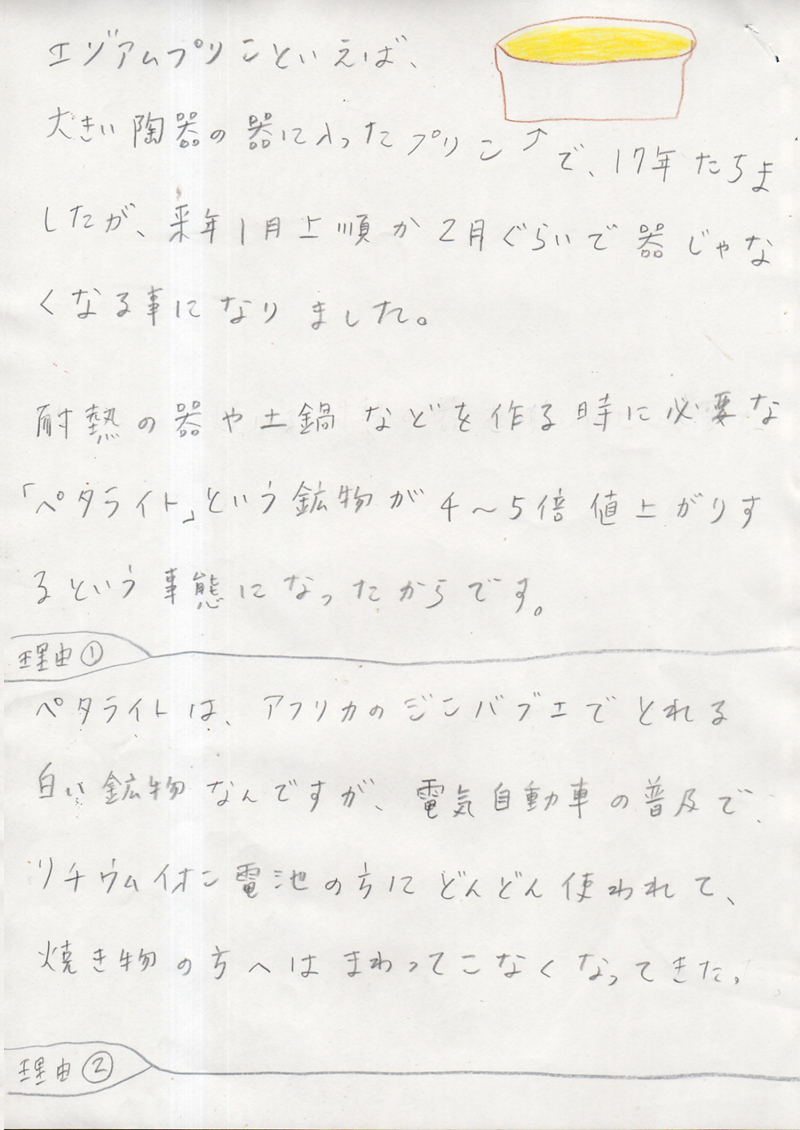 エゾアムプリンといえば、
大きい陶器の器に入ったプリン↑で、17年たちま
したが、来年1月上順か2月ぐらいで器じゃな
くなる事になりました。
耐熱の器や土鍋などを作る時に必要な
「ペタライト」という鉱物が4〜5倍値上がりす
るという事態になったからです。
理由①
ペタライトは、アフリカのジンバブエでとれる
白い鉱物なんですが、電気自動車の普及で、
リチウムイオン電池の方にどんどん使われて、
焼き物の方へはまわってこなくなってきた。
理由②